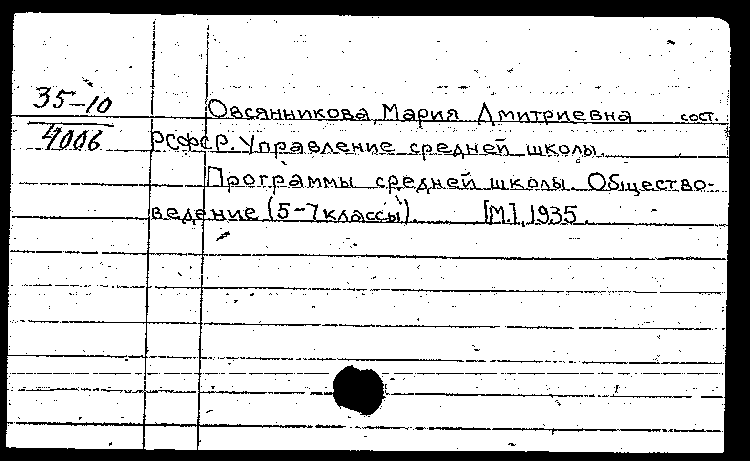 35-10
4006
Овсянникова, Мария Дмитриевна сост.
РСФСР. Управление средней школы.
Программы средней школы. Общество-
ведение (5-7 классы). [М.], 1935.